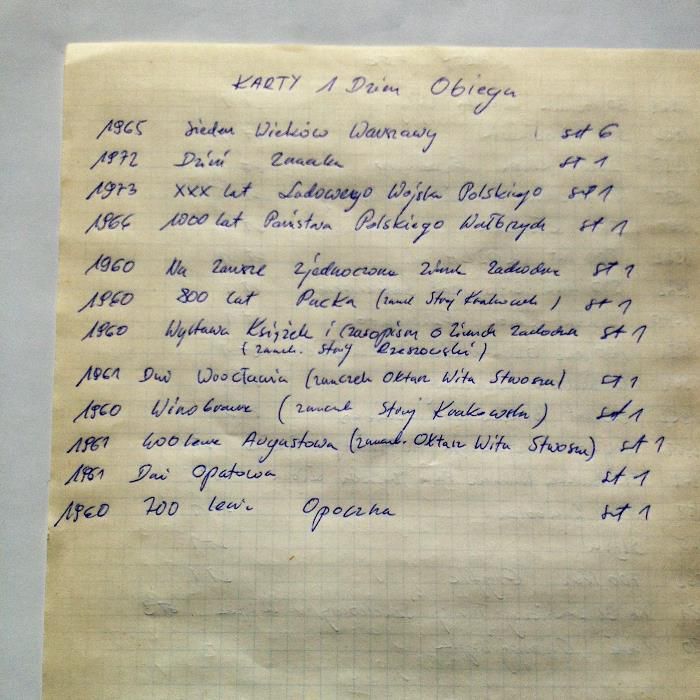 KARTY 1 Dzień Obiegu
1965 Siedem Wieków Warszawy szt 6
1972 Dzień Znaczka szt 1
1973 XXX lat Ludowego Wojska Polskiego szt 1
1966 1000 lat Państwa Polskiego Wałbrzych szt 1
1960 Na zawsze zjednoczone Ziemie Zachodnie szt 1
1960 800 lat Pucka (znacz. Strój Krakowski) szt 1
1960 Wystawa Książek i Czasopism o Ziemiach Zachodnich szt 1
(znacz. Strój Rzeszowski)
1961 Dni Wrocławia (znaczek Ołtarz Wita Stwosza) szt 1
1960 Winobranie (znaczek Strój Krakowski) szt 1
1961 400 lecie Augustowa (znacz. Ołtarz Wita Stwosza) szt 1
1961 Dni Opatowa szt 1
1960 700 lecie Opoczna szt 1